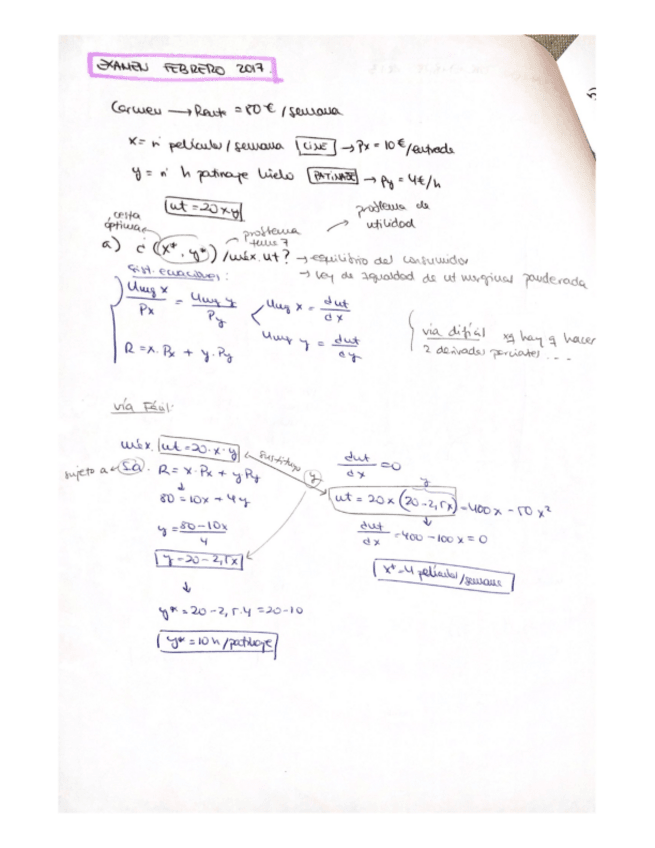 EXAMEN FEBRERO 2017.
Carmen → Renta = 80 € /semana
x = nº películas / semana CINE → Px = 10 €/entrada
y = nº h patinaje hielo PATINAJE → Py = 4 €/h
ut = 20xy
cesta óptima
problema tema 7
problema de utilidad
a) ¿ (x*, y*) / máx. ut? → equilibrio del consumidor
→ Ley de igualdad de ut marginal ponderada
Sist. ecuaciones:
Umg x / Px = Umg y / Py
Umg x = dut / dx
Umg y = dut / dy
R = x · Px + y · Py
vía difícil xq hay q hacer
2 derivadas parciales ...
vía Fácil:
máx. ut = 20 · x · y
sustituyo y
sujeto a S.a. R = x · Px + y Py
80 = 10x + 4y
y = 80 - 10x / 4
y = 20 - 2,5x
y* = 20 - 2,5 · 4 = 20 - 10
y* = 10 h / patinaje
dut / dx = 0
y
ut = 20x (20 - 2,5x) = 400x - 50x²
dut / dx = 400 - 100x = 0
x* = 4 películas / semana